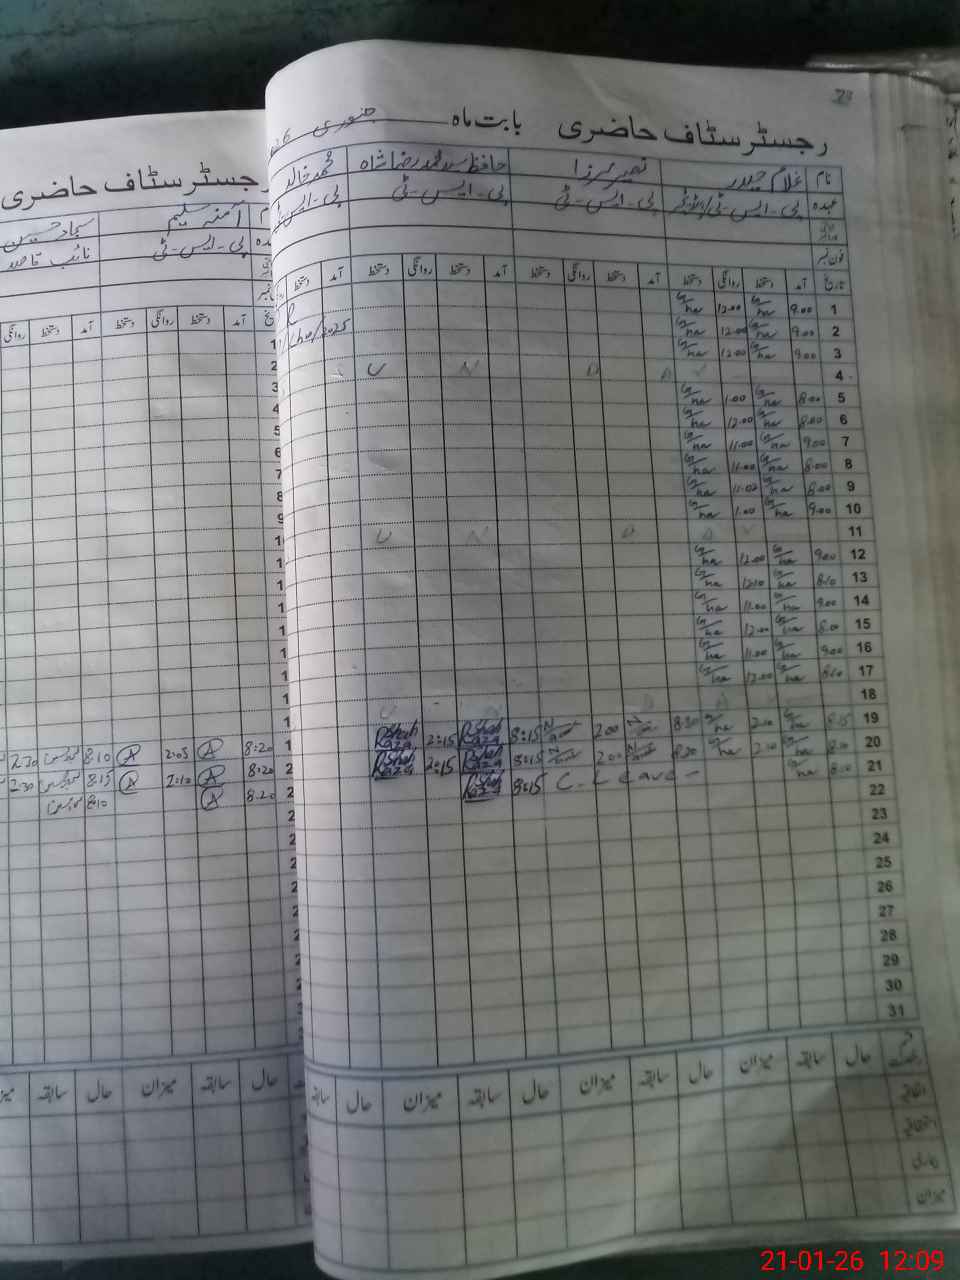 رجسٹر سٹاف حاضری بابت ماہ جنوری
نام غلام حیدر حافظ سید محمد رضا شاہ محمد خالد
عہدہ پی-ایس-ٹی پی-ایس-ٹی پی-ایس-ٹی
فون نمبر
تاریخ آمد دستخط روانگی دستخط آمد دستخط روانگی دستخط آمد دستخط روانگی دستخط آمد دستخط
1 9.00 G/ha 12.00 G/ha
2 9.00 G/ha 12.00 G/ha
3 9.00 G/ha 12.00 G/ha
4 S U N D A Y
5 8.00 G/ha 1.00 G/ha
6 8.00 G/ha 12.00 G/ha
7 9.00 G/ha 11.00 G/ha
8 8.00 G/ha 11.00 G/ha
9 8.00 G/ha G/ha
10 9.00 G/ha 1.00 G/ha
11 U N D A Y
12 9.00 G/ha 12.00 G/ha
13 8.10 G/ha 12.10 G/ha
14 9.00 G/ha 11.00 G/ha
15 8.00 G/ha 12.00 G/ha
16 9.00 G/ha 11.00 G/ha
17 8.10 G/ha 12.00 G/ha
18 U N D A Y
19 8.15 G/ha 2.10 G/ha 8.20 2.00 8:15 Shah Raza 2:15 Shah Raza
20 8.10 G/ha 2.10 G/ha 8.20 2.00 8:15 Shah Raza 2:15 Shah Raza
21 8.10 G/ha C. Leave - 8:15 Shah Raza
22
23
24
25
26
27
28
29
30
31
حال سابقہ میزان حال سابقہ میزان حال سابقہ میزان حال سابقہ
اتفاقیہ
استحقاقیہ
بیماری
میزان
رجسٹر سٹاف حاضری
آمنہ سلیم سجاد حسین
پی-ایس-ٹی نائب قاصد
آمد دستخط روانگی دستخط آمد دستخط روانگی
8:20 2:05 8:10 2:30
8:20 2:10 8:15 2:30
8:20 8:10
حال سابقہ میزان حال سابقہ
21-01-26 12:09